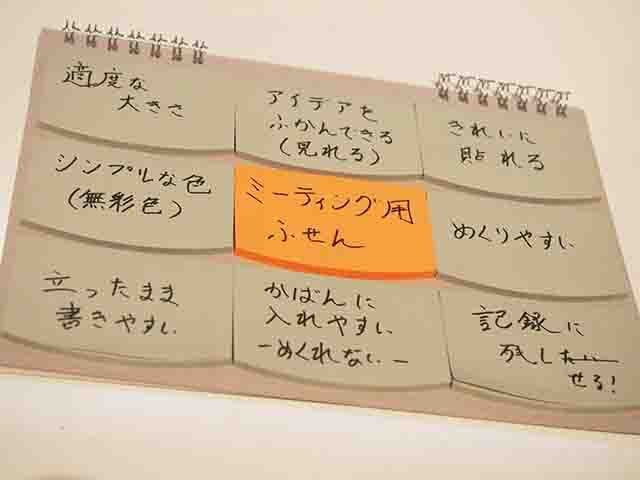 適度な
大きさ
アイデアを
ふかんできる
(見れる)
きれいに
貼れる
シンプルな色
(無彩色)
ミーティング用
ふせん
めくりやすい
立ったまま
書きやすい
かばんに
入れやすい
-めくれない-
記録に
残したい
せる!